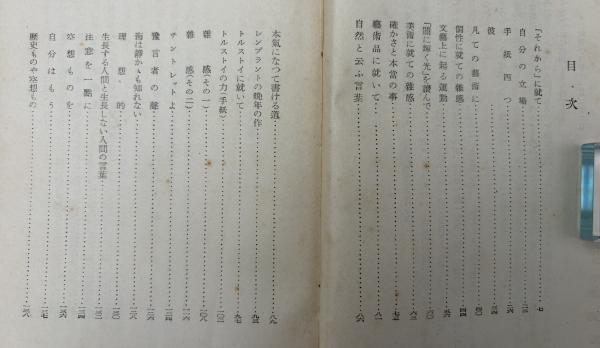 目次
「それから」に就て……七
自分の立場……二三
手紙四つ……二六
彼……三四
凡ての藝術に……四〇
個性に就ての雜感……四四
文藝上に起る運動……五六
「闇に輝く光」を讀んで……六〇
美術に就ての雜感……六三
確かさと本當の事……七三
藝術品に就いて……八一
自然と云ふ言葉……八六
本氣になつて書ける道……八九
レンブラントの晩年の作……九三
トルストイに就いて……九七
トルストイの力(手紙)……一〇二
雜感(その一)……一〇八
雜感(その二)……一一六
チントレットよ……一二四
豫言者の聲……一二六
海は靜かかも知れない……一二八
理想的……一三〇
生長する人間と生長しない人間の言葉……一三二
注意を一點に……一三四
空想ものを……一三六
自分はもう……一三七
歴史ものや空想もの……一三八